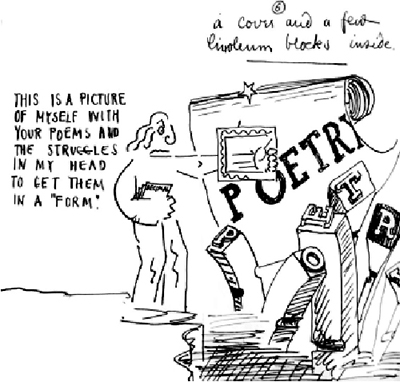 6
a cover and a few
linoleum blocks inside.
THIS IS A PICTURE
OF MYSELF WITH
YOUR POEMS AND
THE STRUGGLES
IN MY HEAD
TO GET THEM
IN A "FORM".
POETRY
P
O
E
T
A